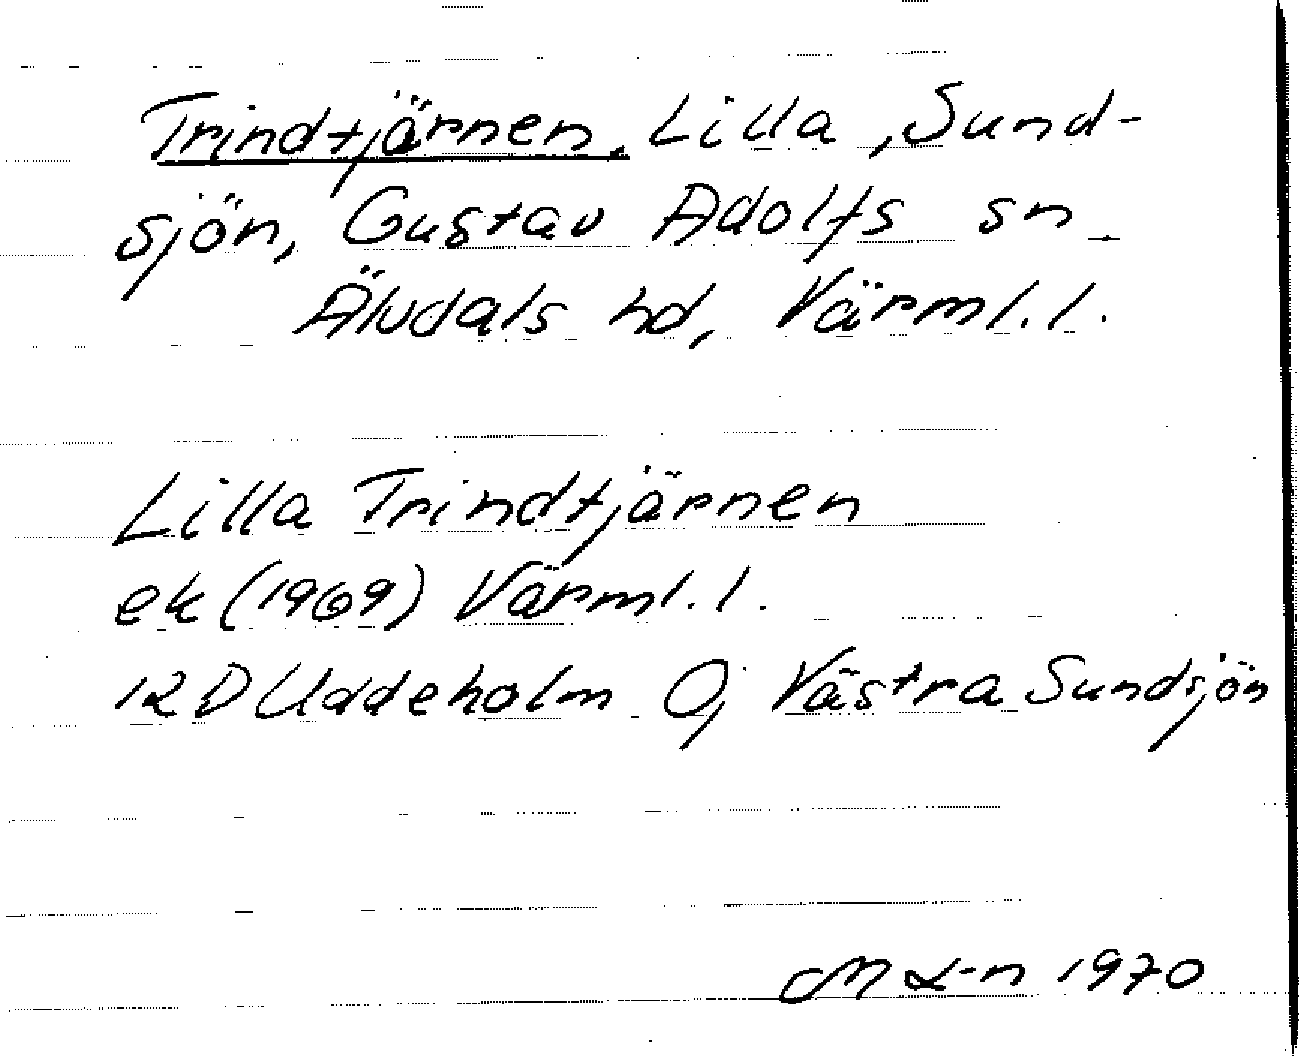 Trindtjärnen, Lilla, Sund-
sjön, Gustav Adolfs sn
Älvdals hd, Värml. l.
Lilla Trindtjärnen
ek (1969) Värml. l.
12 D Uddeholm Oj Västra Sundsjön
M L-n 1970